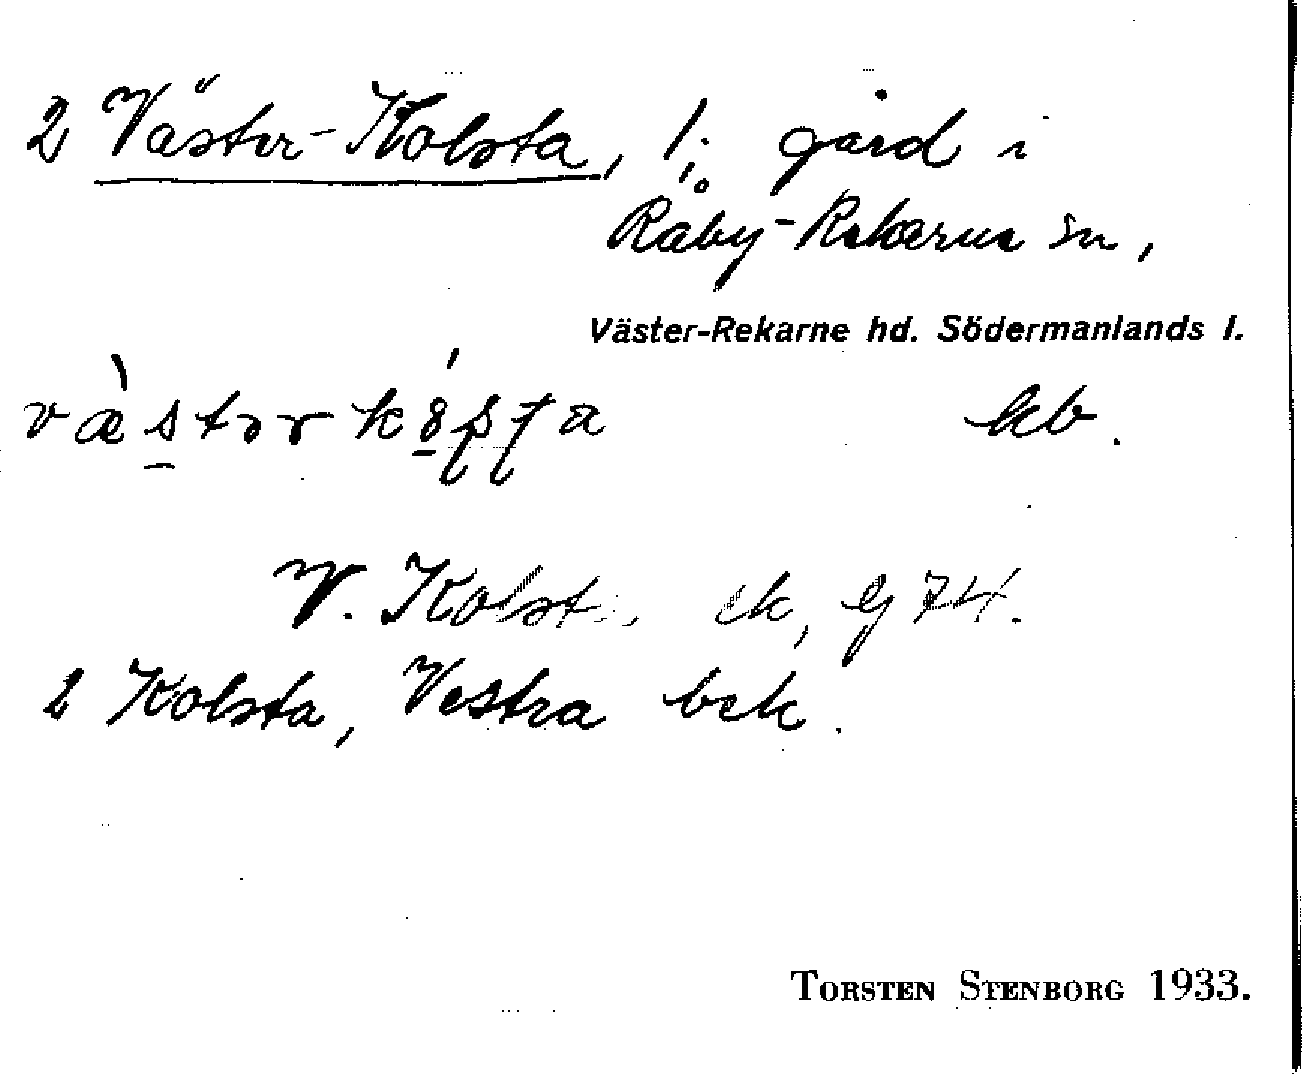 2 Väster-Kolsta, 1; gård i
Råby-Rekarne sn,
Väster-Rekarne hd. Södermanlands l.
kb.
V. Kolsta, ek, Gj 74.
2 Kolsta, Vestra bek.
TORSTEN STENBORG 1933.